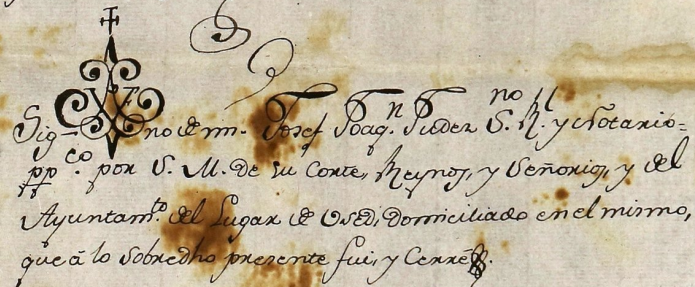 Sig-no de mi Josef Joaqn. Pudez S.no R.l y Notario=
ppco. por S. M. de su Corte, Reynos, y Señorios, y del
Ayuntamto. del Lugar de Used, domiciliado en el mismo,
que á lo sobredho presente fui, y Cerré.